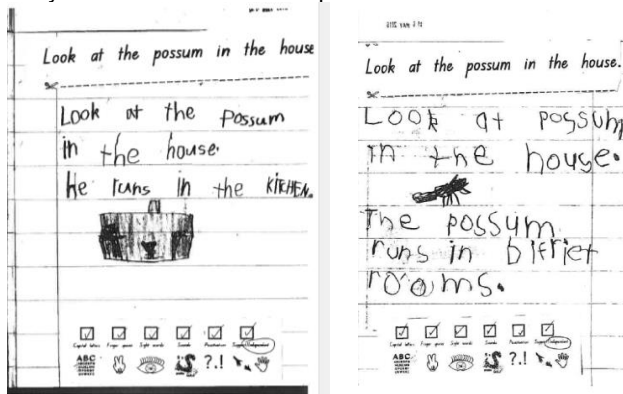 Look at the possum in the house
Look at the possum
in the house.
He runs in the KitcHEN.
Capital letters Finger spaces Sight words Sounds Punctuation Support/Independent
ABC ?.!
Look at the possum in the house.
Look at possum
in the house.
The possum
runs in bifriet
rooms.
Capital letters Finger spaces Sight words Sounds Punctuation Support/Independent
ABC ?.!